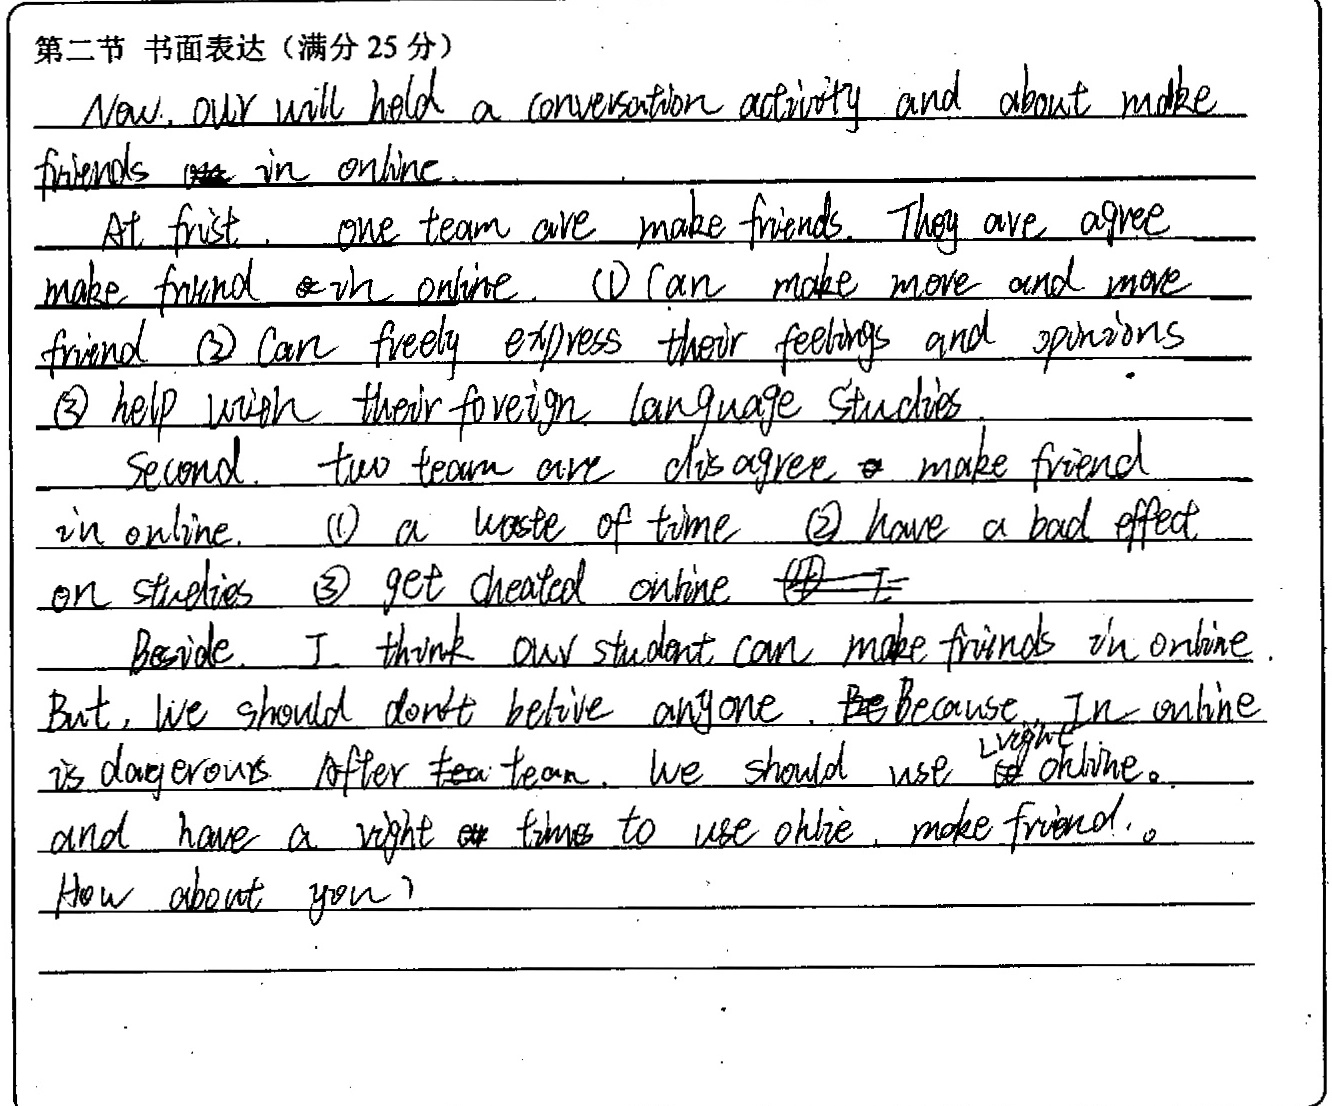 第二节 书面表达（满分 25 分）
Now. our will hold a conversation activity and about make
friends in online.
At frist. one team are make friends. They are agree
make friend in online. (1) Can make more and more
friend (2) Can freely express their feelings and opinions
(3) help with their foreign language studies.
Second. two team are disagree make friend
in online. (1) a waste of time (2) have a bad effect
on studies (3) get cheated online
Beside. I think our student can make friends in online.
But, We should don't belive anyone. Because. In online
is dangerous After team. We should use right online。
and have a right times to use onlie. make friend.。
How about you?